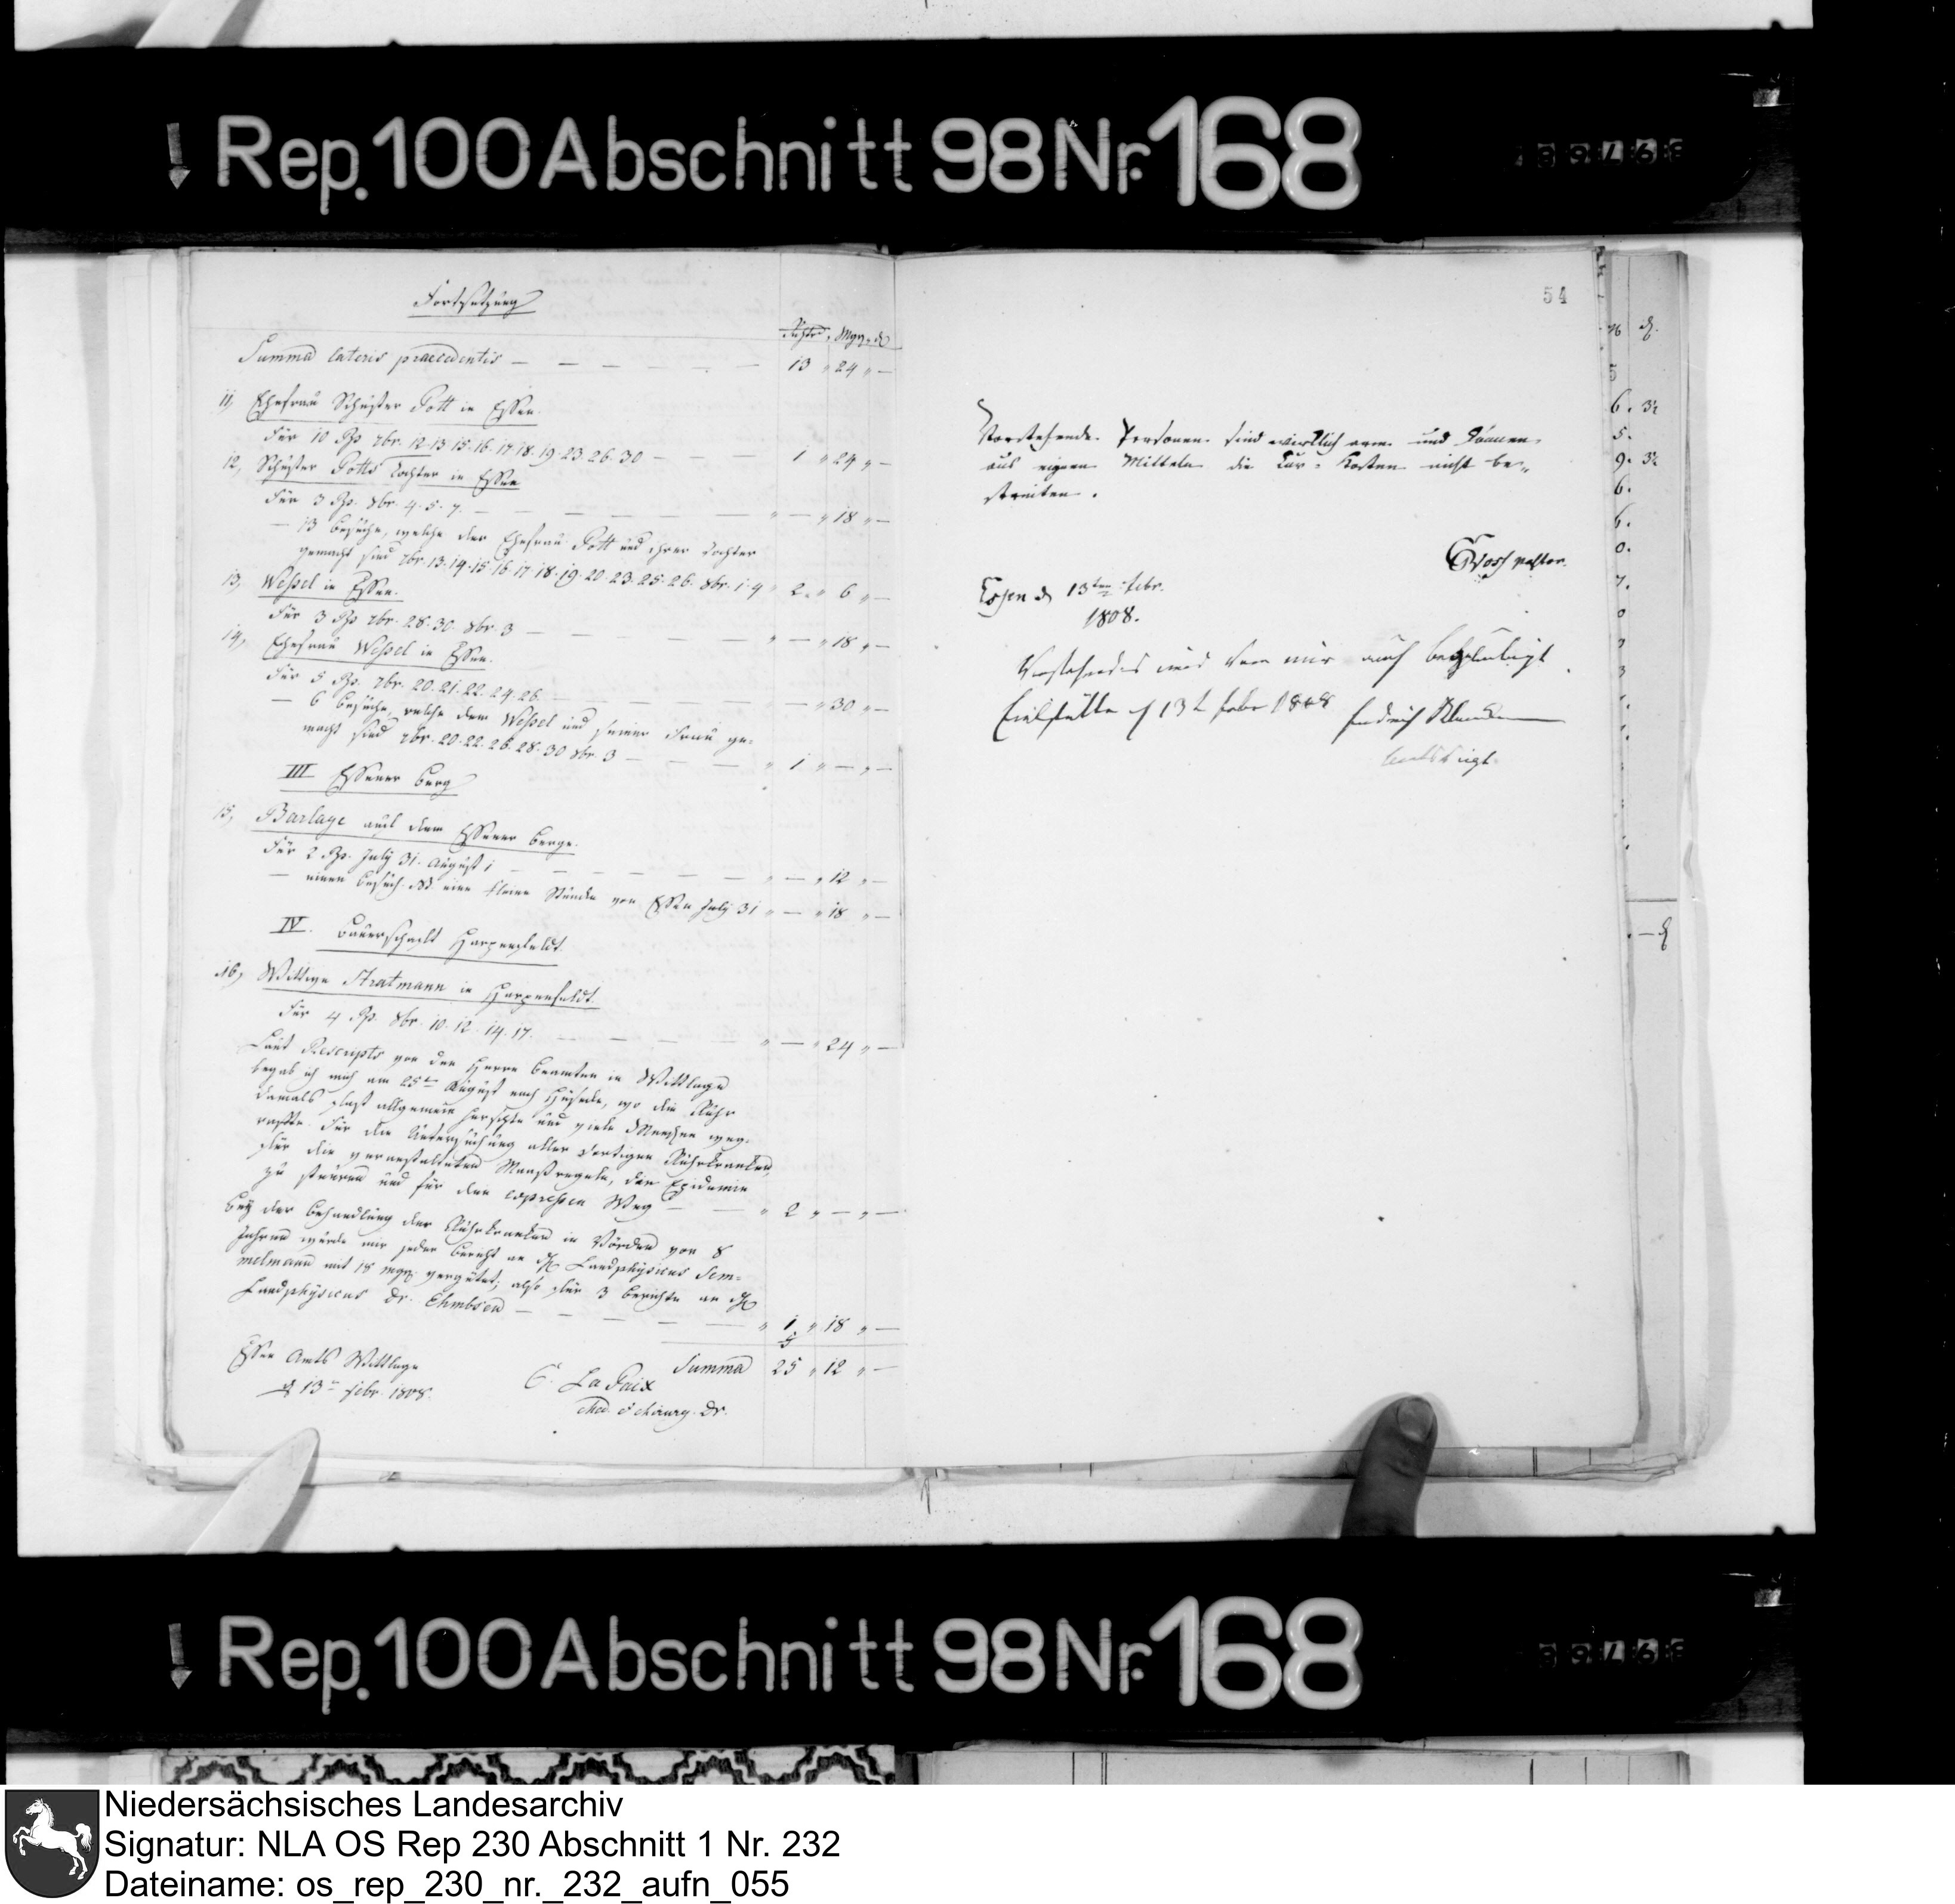 Rep. 100 Abschnitt 98 Nr. 168
Fortsetzung
Rthlr. Mgr. d
Summa lateris praecedentis — — — — — 13 " 24 " —
11, Ehefrau Schuster Pott in Essen.
Für 10 Rp. 7br. 12. 13. 15. 16. 17. 18. 19. 23. 26. 30 — — — 1 " 24 " —
12, Schuster Potts Tochter in Essen
Für 3 Rp. 8br. 4. 5. 7. — — — — — " — " 18 " —
— 13 Besuche, welche der Ehefrau Pott und ihrer Tochter
gemacht sind 7br. 13. 14. 15. 16. 17. 18. 19. 20. 23. 25. 26. 8br. 1. 4 " 2 " 6 " —
13, Weßel in Essen.
Für 3 Rp. 7br. 28. 30. 8br. 3 — — — — " — " 18 " —
14, Ehefrau Weßel in Essen.
Für 5 Rp. 7br. 20. 21. 22. 24. 26. — — — " 30 " —
— 6 Besuche, welche dem Weßel und seiner Frau ge-
macht sind 7br. 20. 22. 26. 28. 30 8br. 3 — — — " 1 " — " —
III Essener Berg
15, Barlage auf dem Essener Berge.
Für 2 Rp. July 31. August 1 — — — — " — " 12 " —
— einen Besuch eine kleine Stunde von Essen July 31 " — " 18 " —
IV. Bauerschaft Harpenfeldt.
16, Wittwe Stratmann in Harpenfeldt.
Für 4 Rp. 8br. 10. 12. 14. 17. — — — — " — " 24 " —
Laut Rescripts von den Herrn Beamten in Wittlage
begab ich mich am 25t August nach Hüsede, wo die Ruhr
damals fast allgemein herrschte und viele Menschen weg-
raffte. Für die Untersuchung aller dortigen Ruhrkranken,
für die veranstalteten Maaßregeln, der Epidemie
zu steuren und für den expressen Weg — — " 2 " — " —
Bey der Behandlung der Ruhrkranken in Vörden vor 8
Jahren wurde mir jeder Bericht an H Landphysicus Sem-
melmann mit 18 mgr. vergütet; also für 3 Berichte an H
Landphysicus Dr. Ehmbsen — — — — " 1 " 18 " —
Summa 25 " 12 " —
Essen Amts Wittlage
d 13t febr. 1808.
C. La Paix
Med. & chirurg. Dr.
54
Vorstehende Personen sind wirklich arm und können
aus eignen Mitteln die Cur-Kosten nicht be-
streiten.
Voss pastor.
Essen d 13ten febr.
1808.
Vorstehendes wird von mir auch beglaubigt
d 13t febr 1808
Rep. 100 Abschnitt 98 Nr. 168
Niedersächsisches Landesarchiv
Signatur: NLA OS Rep 230 Abschnitt 1 Nr. 232
Dateiname: os_rep_230_nr._232_aufn_055